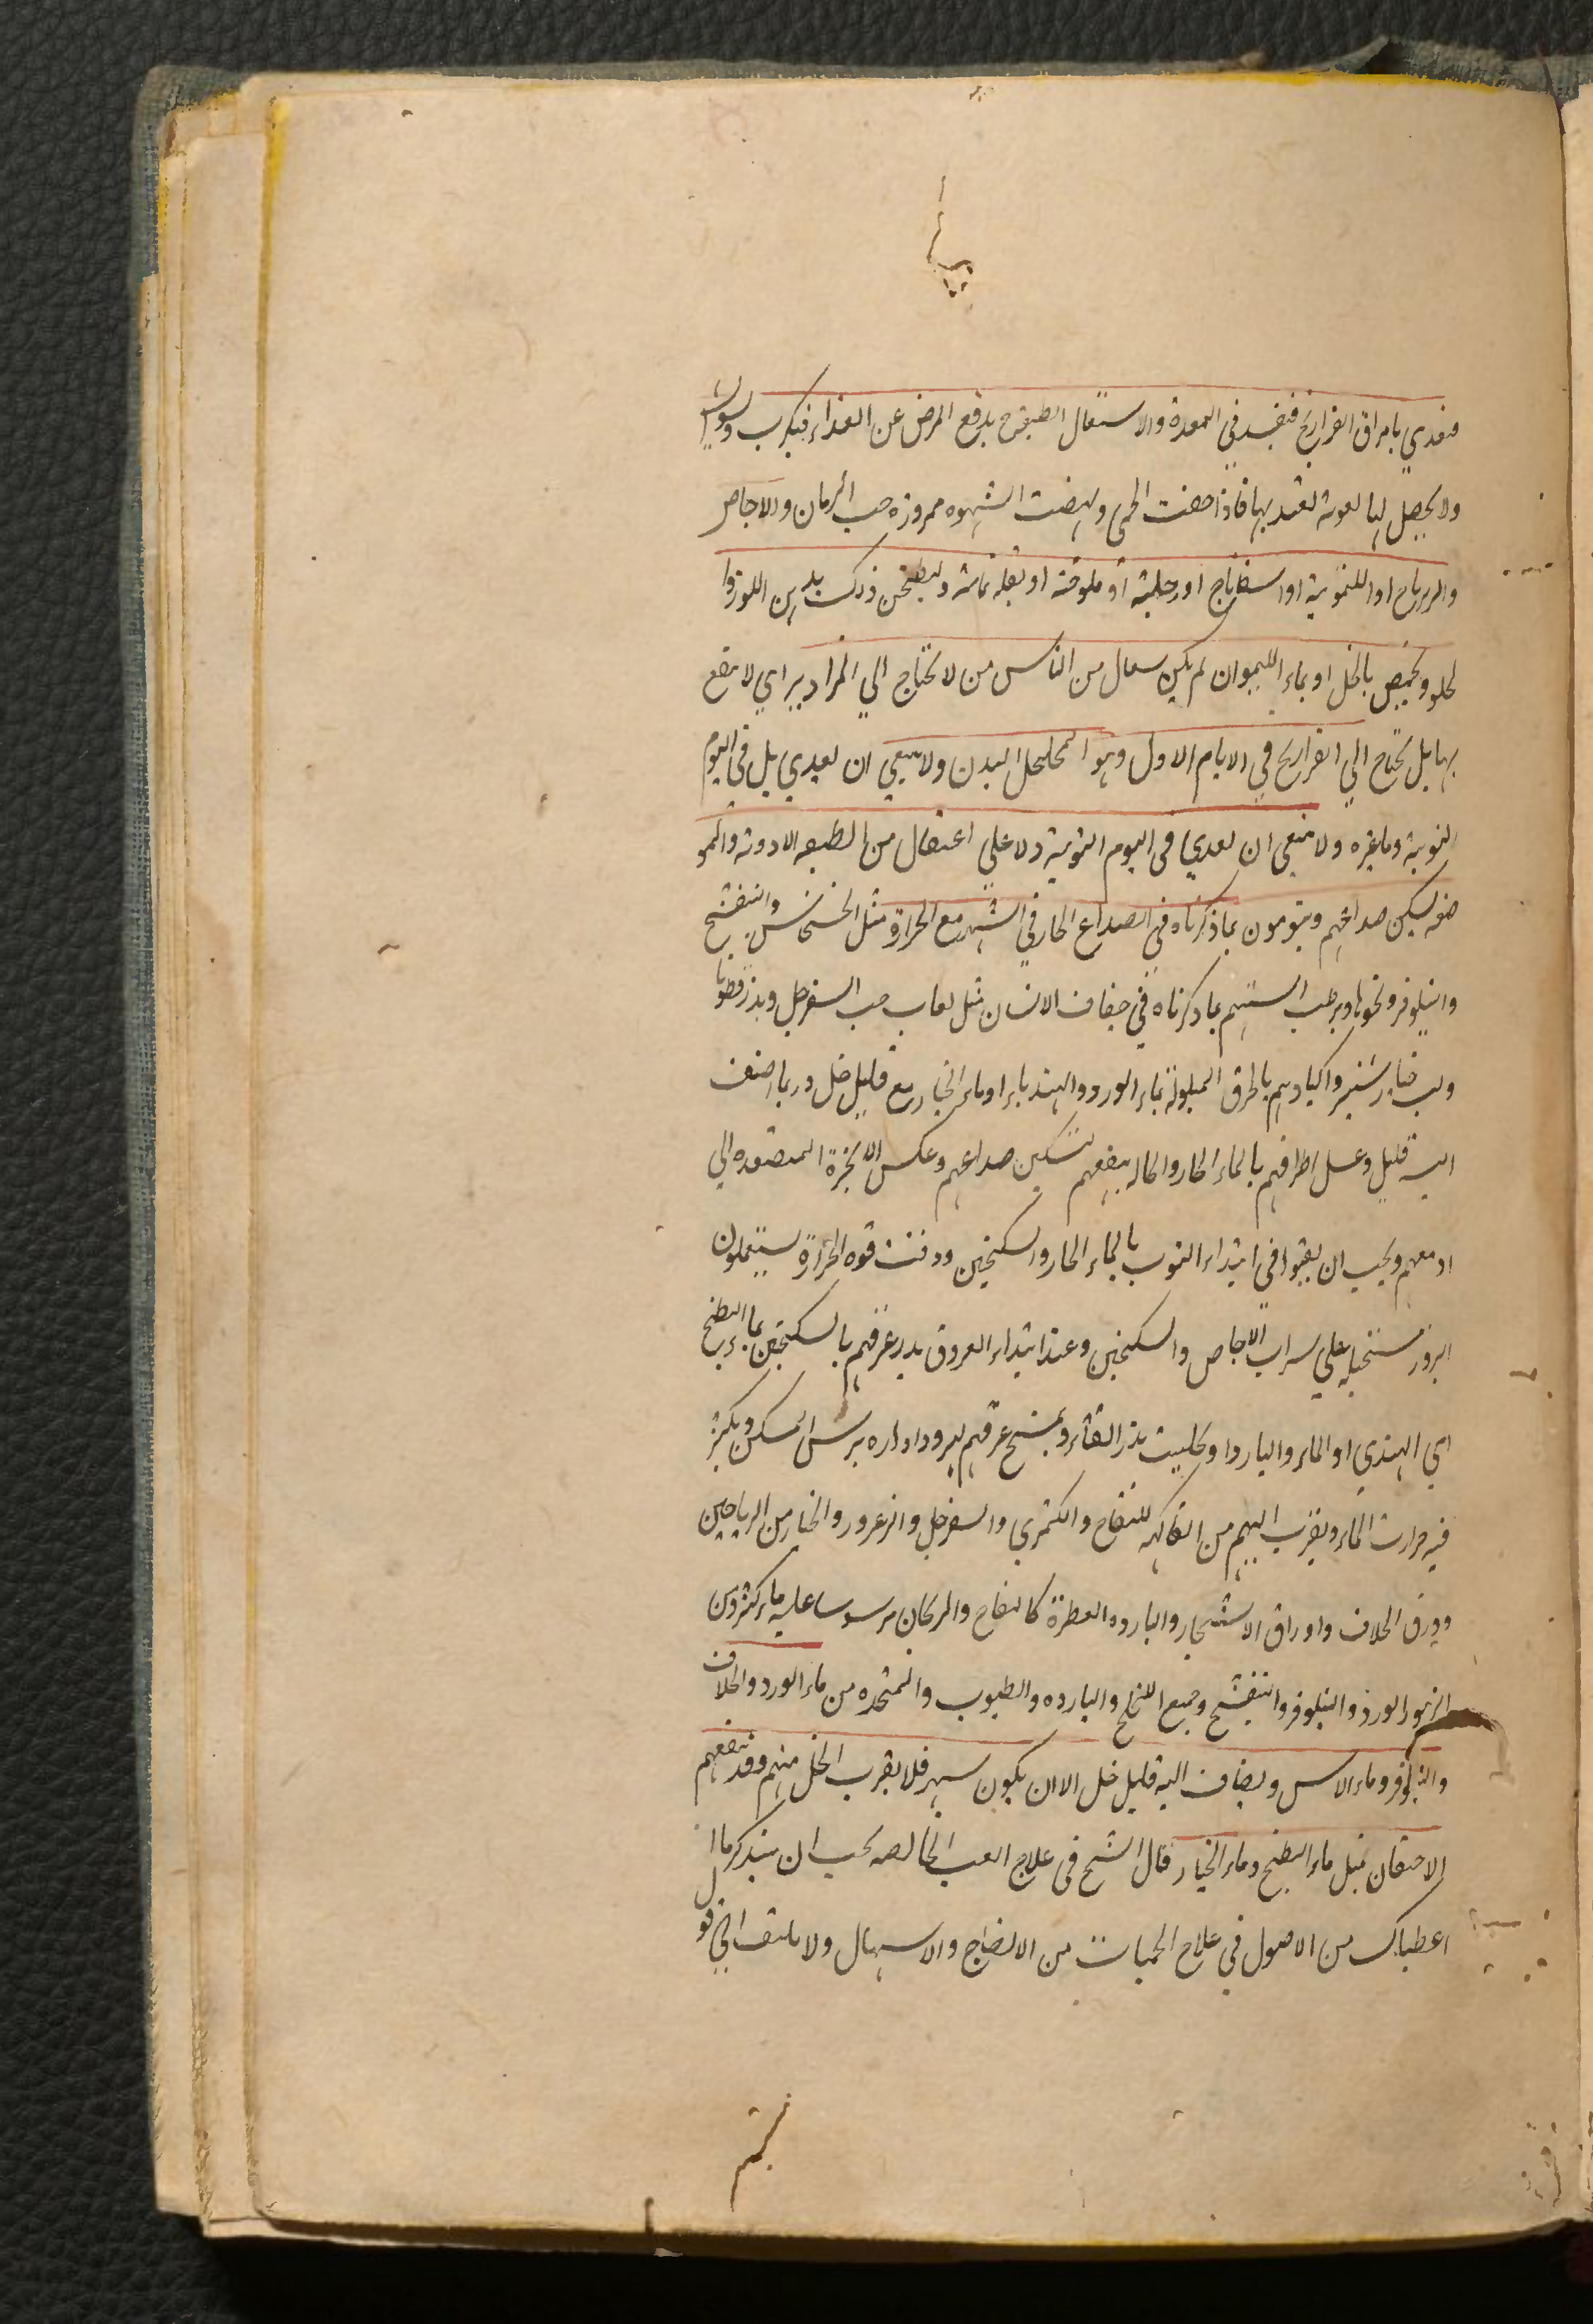 فيغذي بامراق الفراريج فيفسد في المعدة والاستعمال الطبيعة بدفع المرض عن الغذاء فيكرب
ولا يحصل لها تغوية تعتد بها فاذا خفت الحمى ونهضت الشهوه مزوره حب الرمان والاجاص
والزرباج او الليمونية او اسفاناج او رجلية او ملوخية او بقلة يمانية وليطبخن ذلك بدهن اللوز وا
لحلو ويحمض بالخل او بماء الليمو ان لم يكن سعال من الناس من لا يحتاج الي المزاوير اي لا يقع
بها بل يحتاج الي الفراريج في الايام الاول وهو المتخلخل البدن ولا ينبغي ان يغذي بل في اليوم
النوبة وما غيره ولا ينبغي ان يغذي في اليوم النوبة ولا علي اعتقال من الطبيعه الادوية والممو
ضه ليسكن صداعهم وينومون بما ذكرناه في الصداع الحار في السهر مع الحرارة مثل الخشخاش والبنفسج
والنيلوفر ونحوها ويرطب السنتهم بما ذكرناه في جفاف الانسان مثل لعاب حب السفرجل وبذر قطونا
ولب خيار شنبر واكبادهم بالخرق المبلولة بماء الورد والهندباء او ماء الخيار مع قليل خل وربما اضيف
اليه قليل وغسل اطرافهم بالماء الحار والحاله ينفعهم لتسكين صداعهم وعكس الابخرة المتصعده الي
ادمغهم ويجب ان يقيوا في ابتداء النوب بالماء الحار والسكنجبين ووقت قوه الحرارة يستعملون
البزور مستحلبه علي شراب الاجاص والسكنجبين وعند ابتداء العروق يدر عرقهم بالسكنجبين بماء البطيخ
اي الهندي او الماء والبارد او بحليب بذر القثاء ويمسح عرقهم ليرود ادراره برش المسكن ويكثر
فيه حرارت الماء ويقرب اليهم من الفاكهه للتفاح والكمثري والسفرجل والزعرور والخيار من الرياحين
وورق الخلاف واوراق الاشجار والبارده العطرة كالتفاح والريحان مرسوسا عليه ماء كثير ومن
الزهور الورد والنيلوفر والبنفسج وجميع اللخالخ والبارده والطيوب والمتخده من ماء الورد والخلاف
والنيلوفر وماء الاس ويضاف اليه قليل خل الا ان يكون سهر فلا يقرب الخل منهم وقد ينفعهم
الاحتقان بمثل ماء البطيخ وماء الخيار قال الشيخ في علاج الغب الخالصه يجب ان يتذكر ما ا
اعطيناك من الاصول في علاج الحميات من الانضاج والاسهال ولا يلتفت الي قو